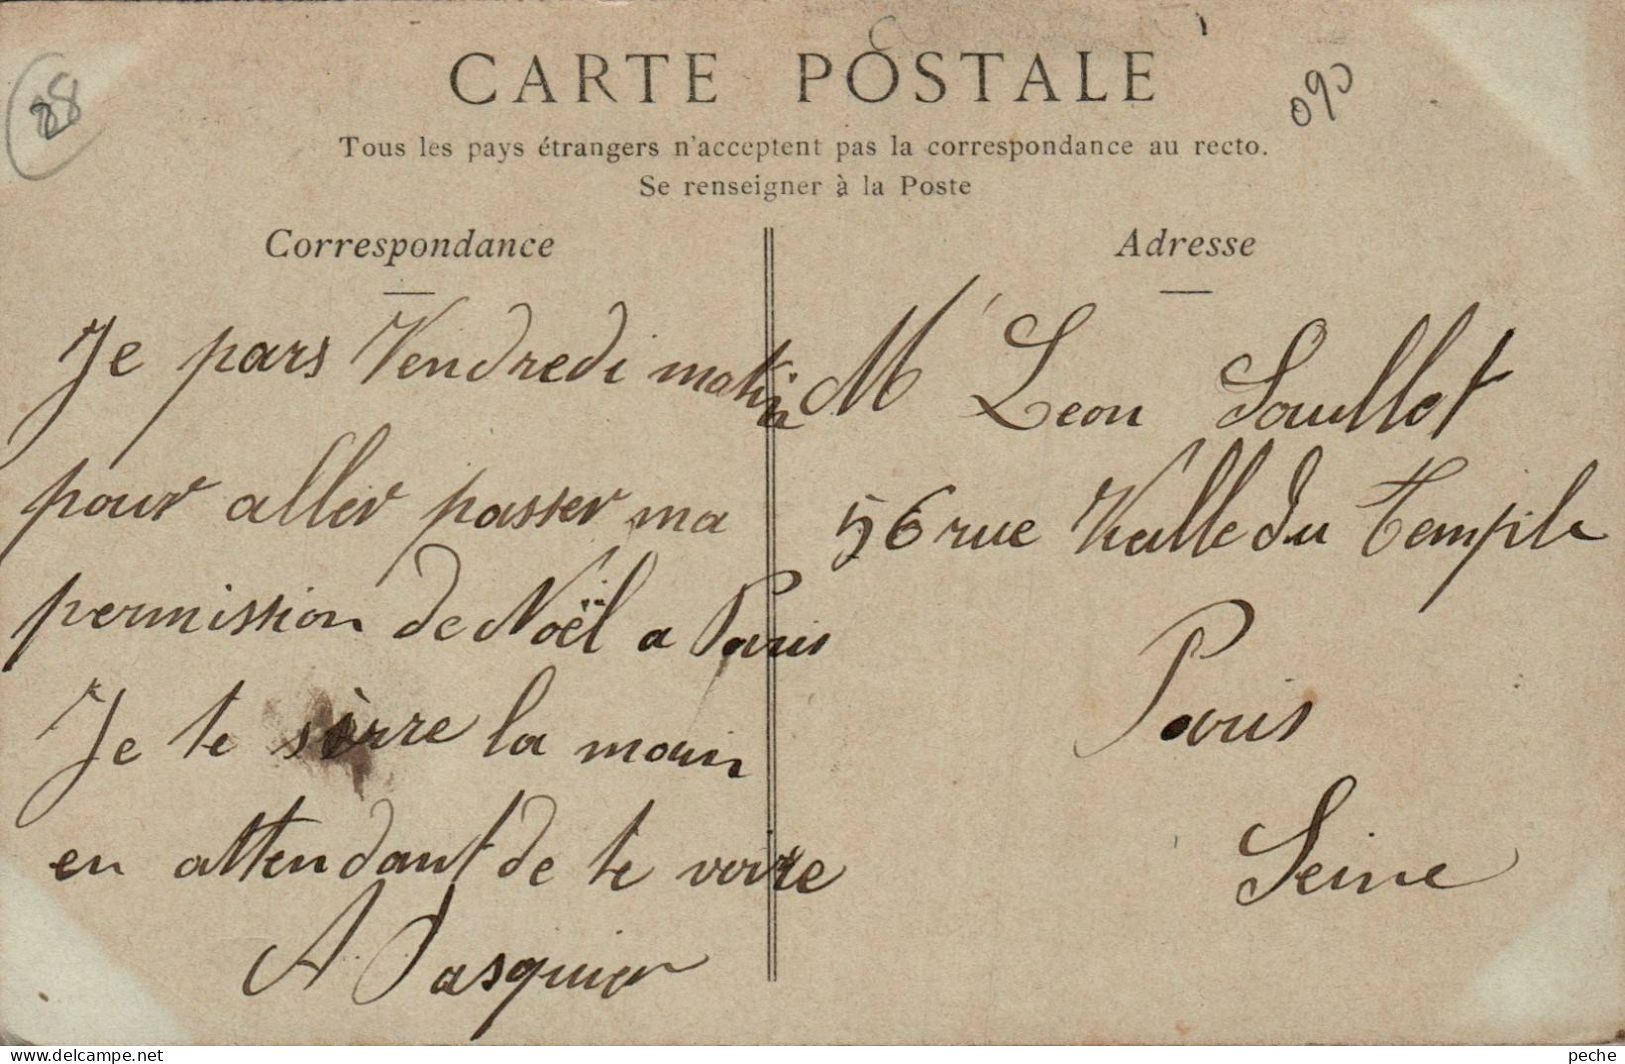 88
CARTE POSTALE
090
Tous les pays étrangers n'acceptent pas la correspondance au recto.
Se renseigner à la Poste
Correspondance
Je pars Vendredi matin
pour aller passer ma
permission de Noël a Paris
Je te sèrre la main
en attendant de te voire
A. Pasquier
Adresse
M Leon Soullot
56 rue Vielle du Temple
Paris
Seine
© www.delcampe.net
peche